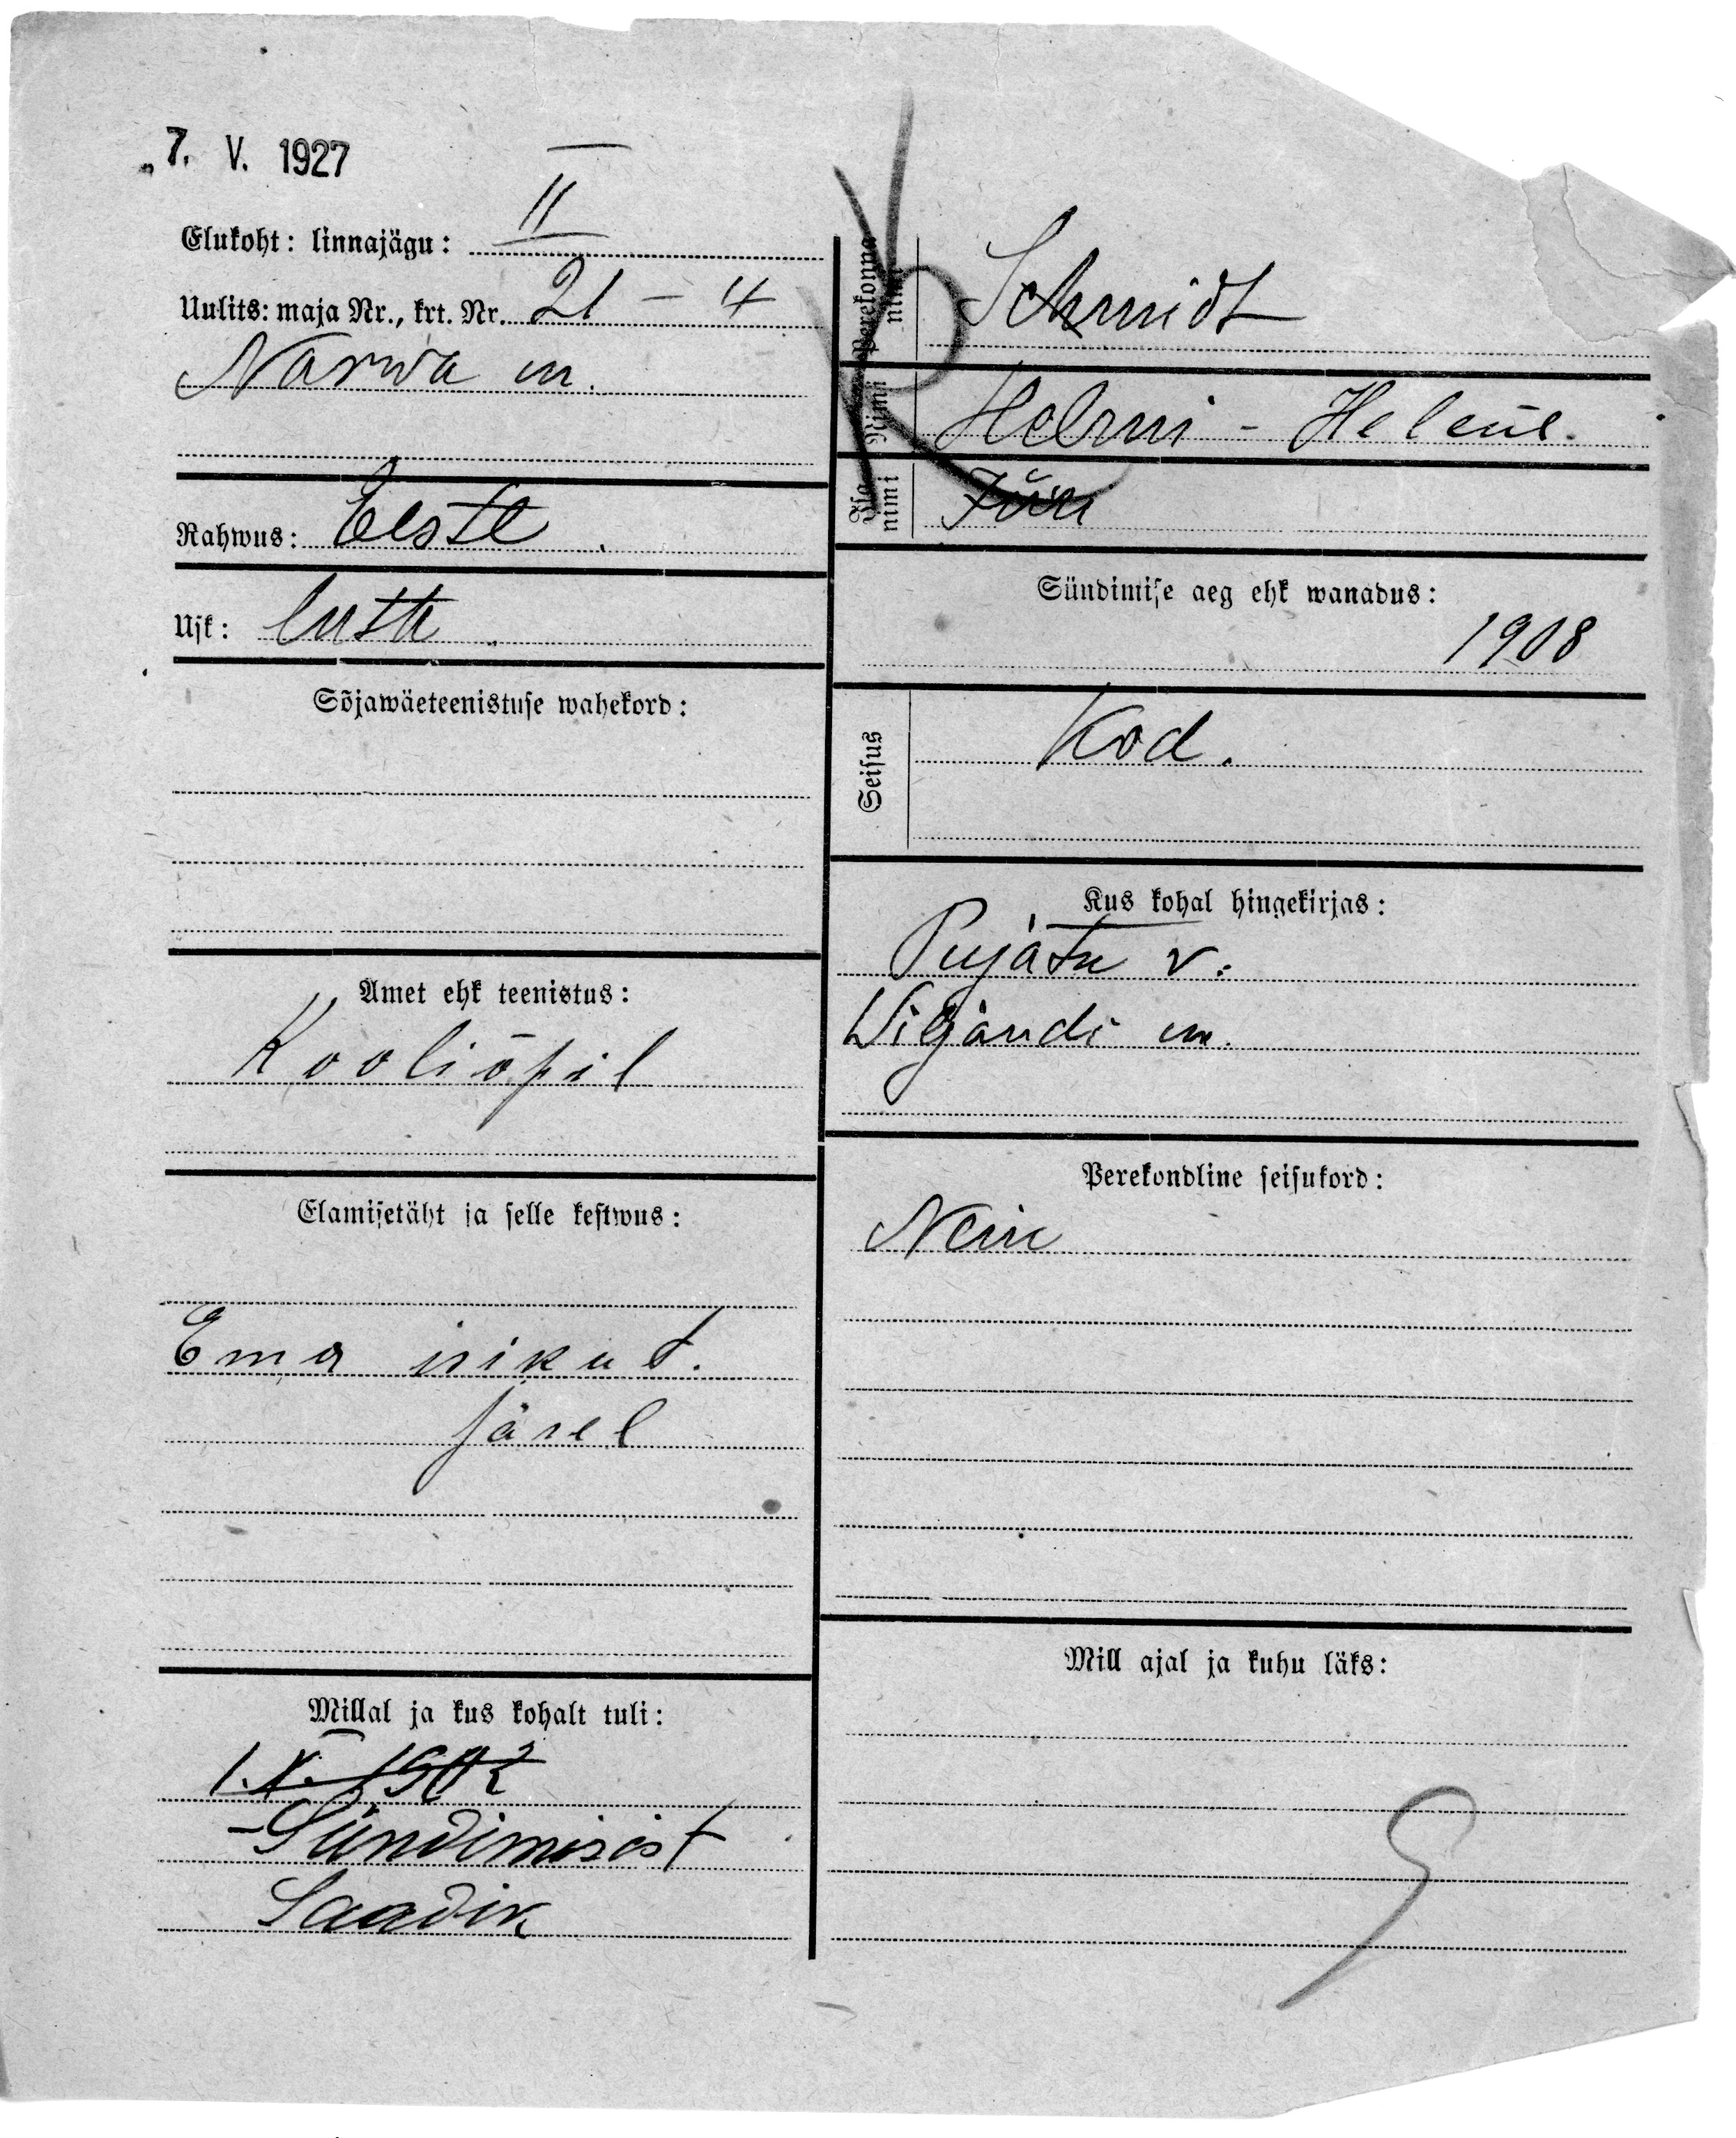 7. V. 1927
Elukoht: linnajägu: II
Uulits: maja Nr., krt. Nr. 21 – 4
Narwa m.
Rahwus: Eestl.
Usk: luth.
Sõjawäeteenistuse wahekord:
Amet ehk teenistus:
Kooliõpil
Elamisetäht ja selle kestwus:
Ema isikut.
järel
Millal ja kus kohalt tuli:
Sündimisest
Saadik
Perekonna nimi Schmidt
Nimi Helmi - Helene.
Isa nimi Jüri
Sündimise aeg ehk wanadus:
1908
Seisus Kod.
Kus kohal hingekirjas:
Pujatu v.
Wiljandi m.
Perekondline seisukord:
Neiu
Mill ajal ja kuhu läks: